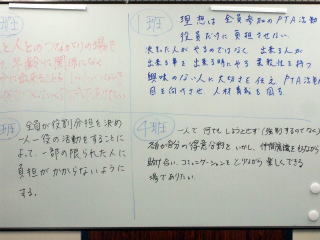 1班
理想は全員参加のPTA活動
役員だけに負担させない
決った人がやるのではなく 出来る人が
出来る事を出来る時にやる 柔軟性を持つ
興味のない人に大切さを伝え、PTA活動に
目を向けさせ、人材育成を図る
班
人と人とのつながりの場で
年齢に関係なく
班
全員が役割分担を決め
一人一役の活動をすることに
よって、一部の限られた人に
負担がかからないように
する。
4班
一人で何でもしようとせず(強制するのでなく)
各自が自分の得意分野をいかし、仲間意識をもちながら
助け合い、コミュニケーションをとりながら楽しくできる
場でありたい。